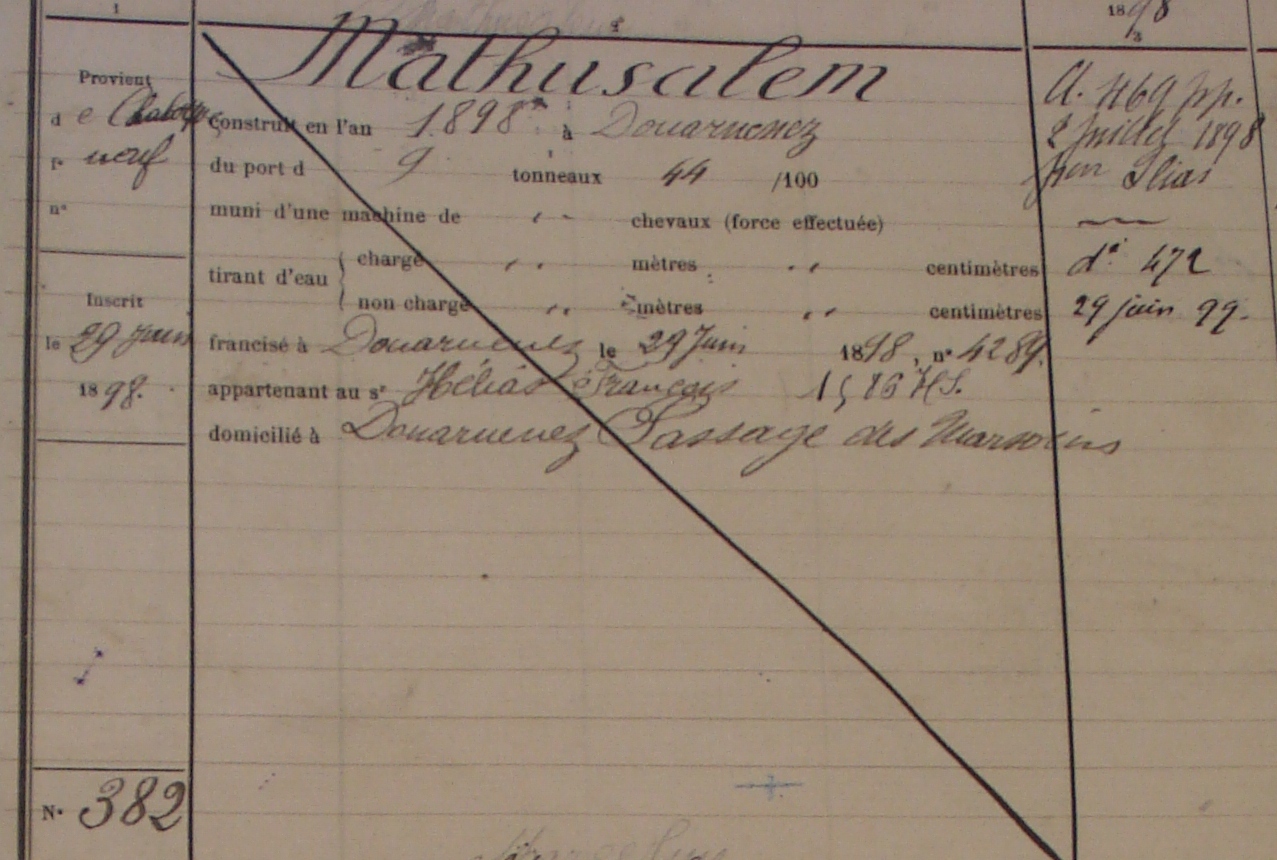 1
2
1898
3
Mathusalem
Provient
de
fº neuf
nº
construit en l'an 1898 à Douarnenez
du port d 9 tonneaux 44 /100
muni d'une machine de " chevaux (force effectuée)
tirant d'eau { chargé " mètres " centimètres
{ non chargé " mètres " centimètres
francisé à Douarnenez le 29 Juin 1898, nº 4289.
appartenant au sr Hélias François 1586 HS.
domicilié à Douarnenez Passage des Marsouins
Inscrit
le 29 Juin
1898.
Nº 382
A. 469 pp.
2 Juillet 1898
dº 472
29 juin 99.